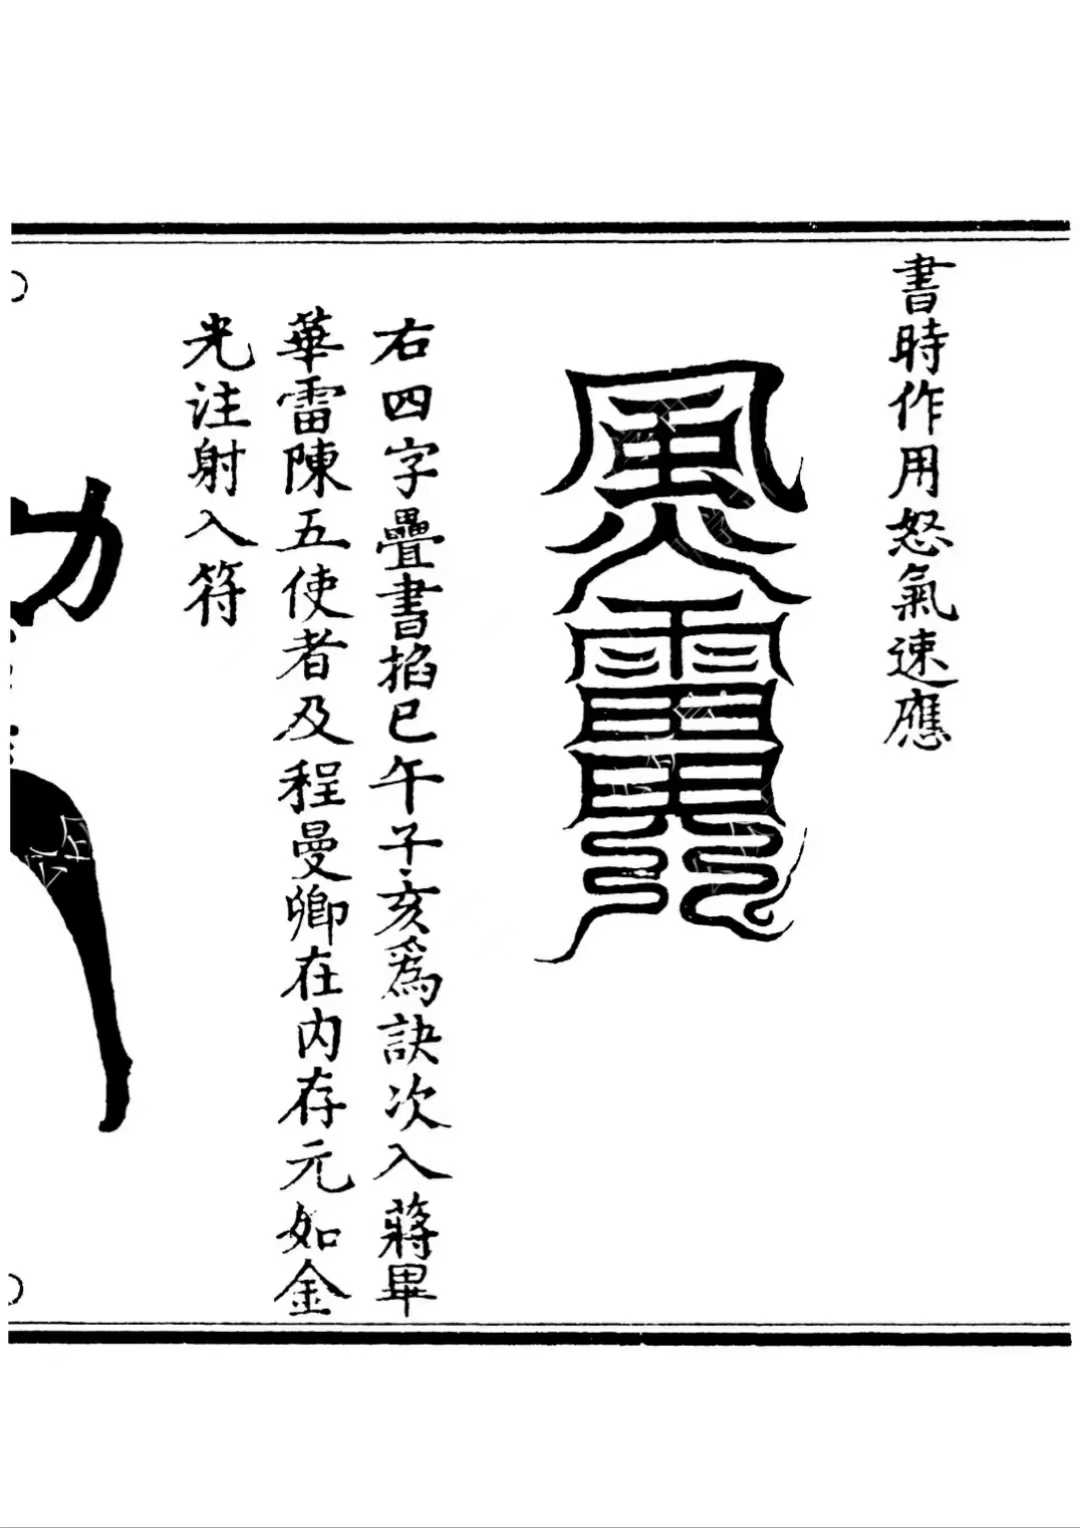 書時作用怒氣速應
右四字疊書掐巳午子亥爲訣次入蔣畢
華雷陳五使者及程曼卿在內存元如金
光注射入符